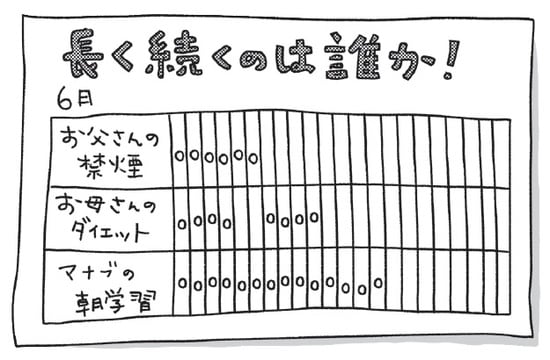 長く続くのは誰か!
6月
お父さんの
禁煙
○○○○○○
お母さんの
ダイエット
○○○○ ○○○○
マナブの
朝学習
○○○○○○○○○○○○○○